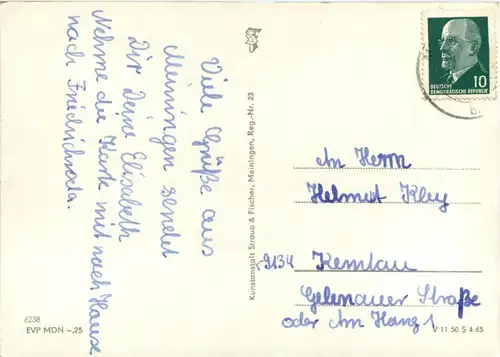 Viele Grüße aus
Meiningen sendet
Dir Deine Elisabeth
Nehme die Karte mit nach Hause
nach Friedrichroda.
6238
EVP MDN –,25
Kunstanstalt Straub & Fischer, Meiningen, Reg.-Nr. 23
10
DEUTSCHE
DEMOKRATISCHE REPUBLIK
An Herrn
Helmut Kley
9134 Kemtau
Gelenauer Straße
oder Am Hang 1
V 11 50 S 4 65